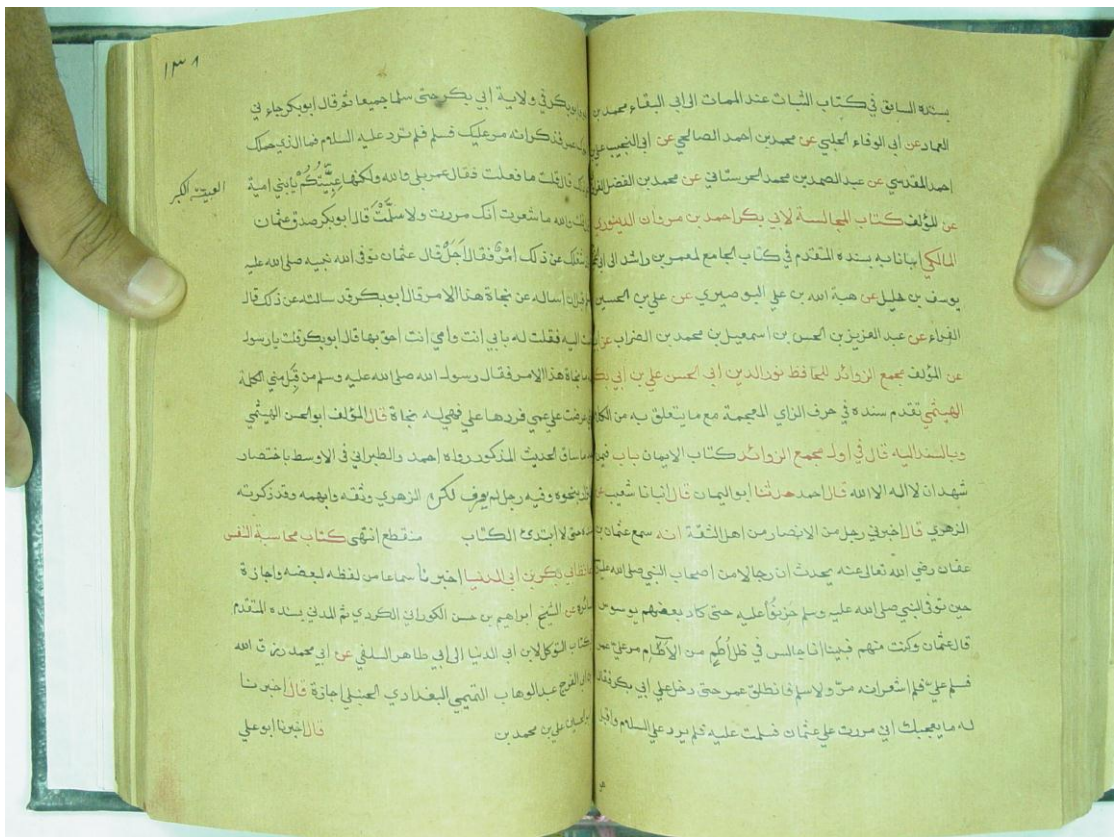 بسنده السابق في كتاب الثبات عند الممات الى ابي البقاء محمد بن
العماد عن ابي الوفاء الحلبي عن محمد بن احمد الصالحي عن ابي النجيب علي بن
احمد المقدسي عن عبد الصمد بن محمد الحرستاني عن محمد بن الفضل
عن المؤلف كتاب المجالسة لابي بكر احمد بن مروان الدينوري
المالكي انبانا به بسنده المتقدم في كتاب الجامع لمعمر بن راشد الى
يوسف بن خليل عن هبة الله بن علي البوصيري عن علي بن الحسين
الفراء عن عبد العزيز بن الحسن بن اسمعيل بن محمد بن الضراب عن
عن المؤلف مجمع الزوائد للحافظ نور الدين ابي الحسن علي بن أبي بكر
الهيثمي تقدم سنده في حرف الزاي المعجمة مع ما يتعلق به من
وبالسند اليه قال في اول مجمع الزوائد كتاب الايمان باب فيمن
شهد ان لا اله الا الله قال احمد حدثنا ابو اليمان قال انبانا شعيب عن
الزهري قال اخبرني رجل من الانصار من اهل الثقة انه سمع عثمان بن
عفان رضي الله تعالى عنه يحدث ان رجالا من اصحاب النبي صلى الله عليه
حين توفي النبي صلى الله عليه وسلم حزنوا عليه حتى كاد بعضهم يوسوس
قال عثمان وكنت منهم فبينا انا جالس في ظل أطم من الآطام مر علي عمر
فسلم علي فلم اشعر انه مر ولا سلم فانطلق عمر حتى دخل على ابي بكر فقال
له ما يعجبك اني مررت على عثمان فسلمت عليه فلم يرد علي السلام واقبل
١٣٨
وابو بكر في ولاية ابي بكر حتى سلما جميعا ثم قال ابو بكر جاءني
عمر فذكر انه مر عليك فسلم فلم ترد عليه السلام فما الذي حملك
قال قلت ما فعلت فقال عمر بلى والله ولكنها عبيتكم يا بني امية
العبية الكبر
قلت والله ما شعرت انك مررت ولا سلمت قال ابو بكر صدق عثمان
شغلك عن ذلك امر فقال أجل قال عثمان توفى الله نبيه صلى الله عليه
ان اساله عن نجاة هذا الامر قال ابو بكر قد سالته عن ذلك قال
اليه فقلت له بابي انت وامي انت احق بها قال ابو بكر قلت يا رسول
ما نجاة هذا الامر فقال رسول الله صلى الله عليه وسلم من قبل مني الكلمة
عرضت على عمي فردها علي فهي له نجاة قال المؤلف ابو الحسن الهيثمي
ما ساق الحديث المذكور رواه احمد والطبراني في الاوسط باختصار
بنحوه وفيه رجل لم يعرف لكن الزهري وثقه وابهمه وقد ذكرته
حتى لا ابتدئ الكتاب منقطع انتهى كتاب محاسبة النفس
ابي بكر بن ابي الدنيا اخبرنا سماعا من لفظه لبعضه واجازة
لسائره عن الشيخ ابراهيم بن حسن الكوراني الكردي ثم المدني بسنده المتقدم
كتاب التوكل لابن ابي الدنيا الى ابي طاهر السلفي عن ابي محمد رزق الله
ابي الفرج عبد الوهاب التميمي البغدادي الحنبلي اجازة قال اخبرنا
علي بن محمد بن قال اخبرنا ابو علي